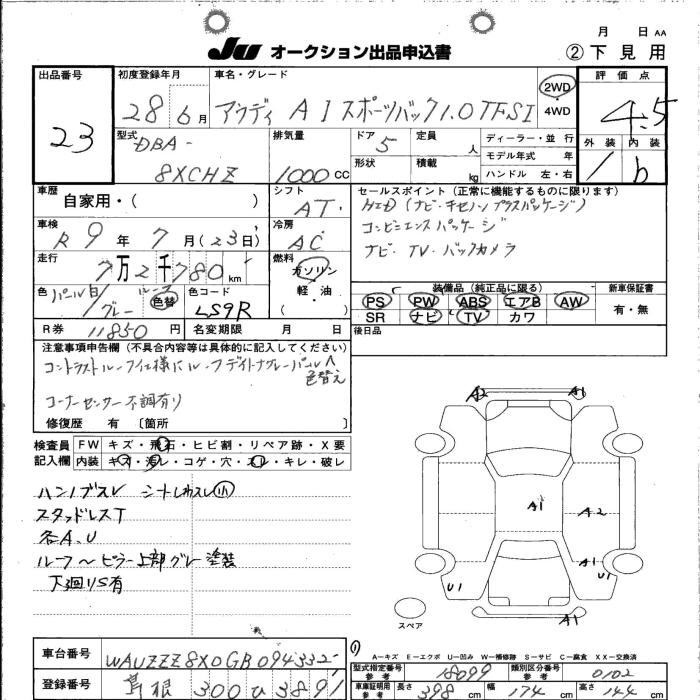 月 日 AA
JU オークション出品申込書
② 下見用
出品番号
23
初度登録年月
28 6月
車名・グレード
アウディ A1スポーツバック1.0TFSI
2WD
4WD
評価点
4.5
型式
DBA-
8XCHZ
排気量
1000 CC
ドア 5
定員 人
形状
積載 kg
ディーラー・並行
モデル年式 年
ハンドル 左・右
外装 内装
1 b
車歴
自家用・( )
シフト
AT
セールスポイント (正常に機能するものに限ります)
HID (ナビ・チセノンプラスパッケージ)
コンビニエンスパッケージ
ナビ・TV・バックカメラ
車検
R9年 7月 (23日)
冷房
AC
走行
7万2千780 km
燃料
ガソリン
軽・油
( )
色
パール白/グレー ルーフ
色替
色コード
LS9R
装備品 (純正品に限る)
PS PW ABS エアB AW
SR ナビ TV カワ
新車保証書
有・無
R券 11850 円
名変期限 月 日
後日品
注意事項申告欄 (不具合内容等は具体的に記入してください)
コントラストルーフ仕様にルーフデイトナグレーパールへ
色替え
コーナーセンサー不調有り
修復歴 有 〔箇所 〕
検査員
記入欄
FW キズ・飛石・ヒビ割・リペア跡・X要
内装 キズ・汚レ・コゲ・穴・スレ・キレ・破レ
ハンノブスレ シートしわスレ小
スタッドレスT
各A.U
ルーフ〜ピラー上部グレー塗装
下廻りS有
A2 A1
A1
A2
A1
U1
U1
A1
スペア
A-キズ E-エクボ U-凹み W-補修跡 S-サビ C-腐食 XX-交換済
車台番号
WAUZZZ8X0GB094332
登録番号
葛根 300 ひ 3891
型式指定番号
参考
18099
類別区分番号
参考
0102
車車証明用
参考
長さ 398 cm
幅 174 cm
高さ 144 cm